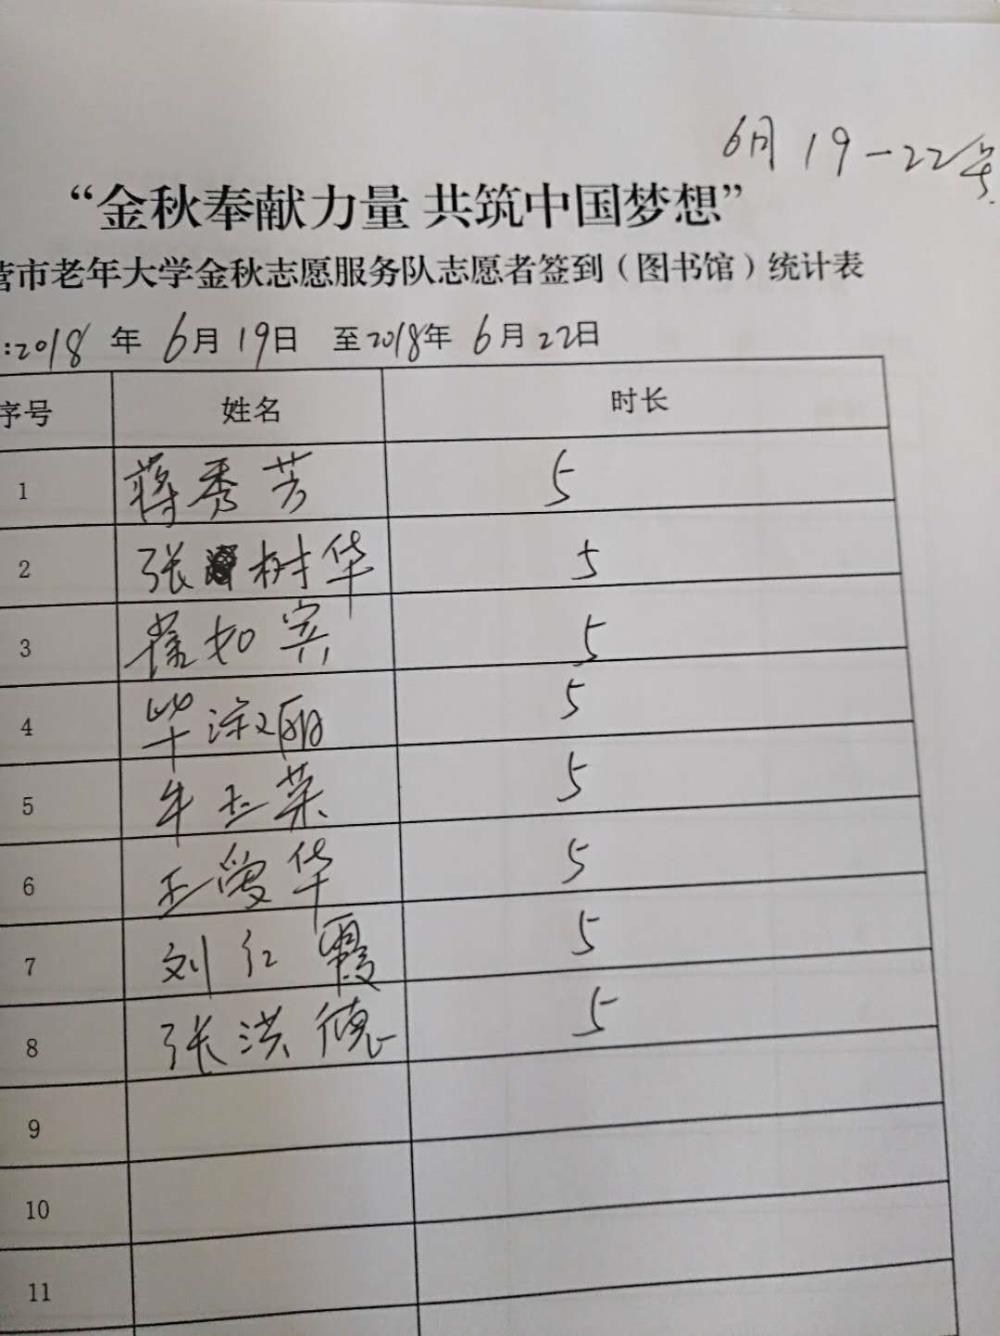 6月19-22号
“金秋奉献力量 共筑中国梦想”
营市老年大学金秋志愿服务队志愿者签到（图书馆）统计表
:2018 年 6月19日 至2018年 6月22日
序号 姓名 时长
1 蒋秀芳 5
2 张树华 5
3 崔如宾 5
4 毕淑丽 5
5 牛玉荣 5
6 王爱华 5
7 刘红霞 5
8 张洪德 5
9
10
11